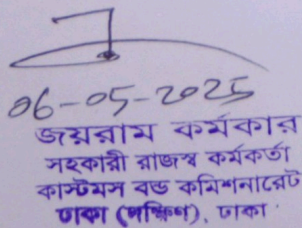 06-05-2025
জয়রাম কর্মকার
সহকারী রাজস্ব কর্মকর্তা
কাস্টমস বন্ড কমিশনারেট
ঢাকা (দক্ষিণ), ঢাকা